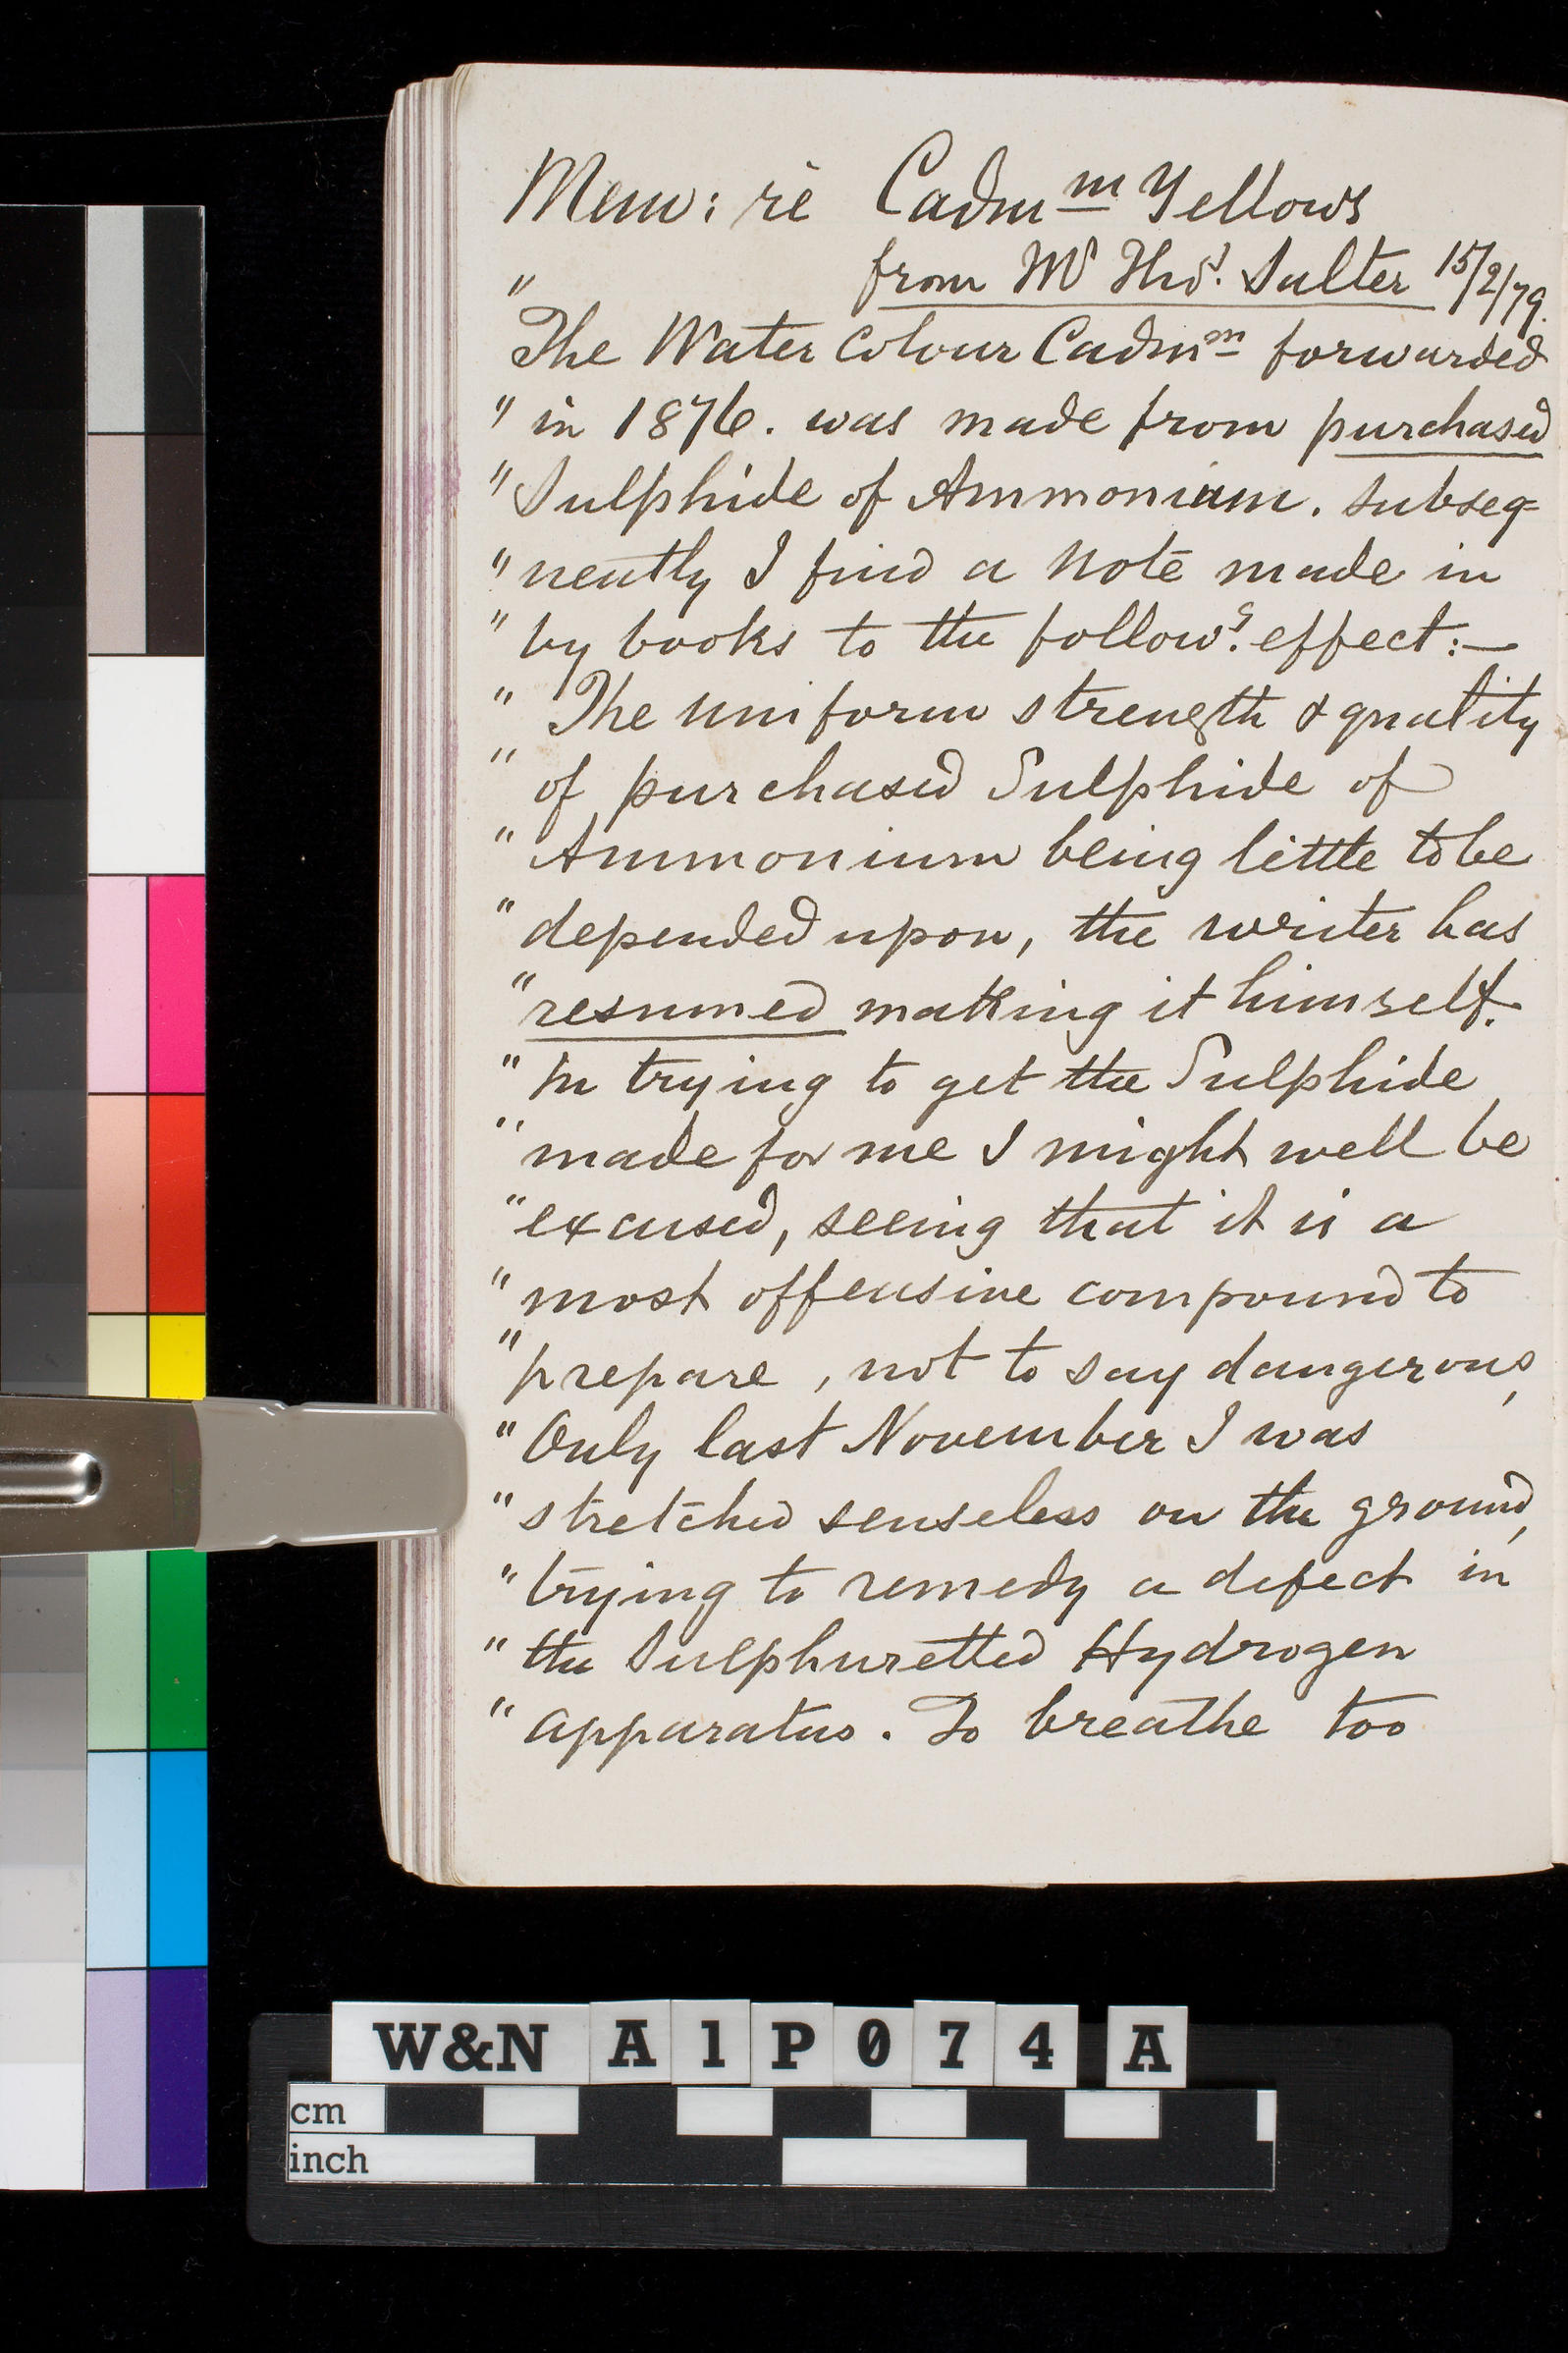 Mem: rè Cadmm Yellows
" from Mr Thos. Salter 15/2/79.
The Water Colour Cadmm forwarded
" in 1876. was made from purchased
" Sulphide of Ammonium. subseq-
" uently I find a note made in
" by books to the followg. effect:—
" The uniform strength & quality
" of purchased Sulphide of
" Ammonium being little to be
" depended upon, the writer has
" resumed making it himself.
" In trying to get the Sulphide
" made for me I might well be
" excused, seeing that it is a
" most offensive compound to
" prepare, not to say dangerous,
" Only last November I was
" stretched senseless on the ground,
" trying to remedy a defect in
" the Sulphuretted Hydrogen
" apparatus. To breathe too
W&N A1P074 A
cm
inch